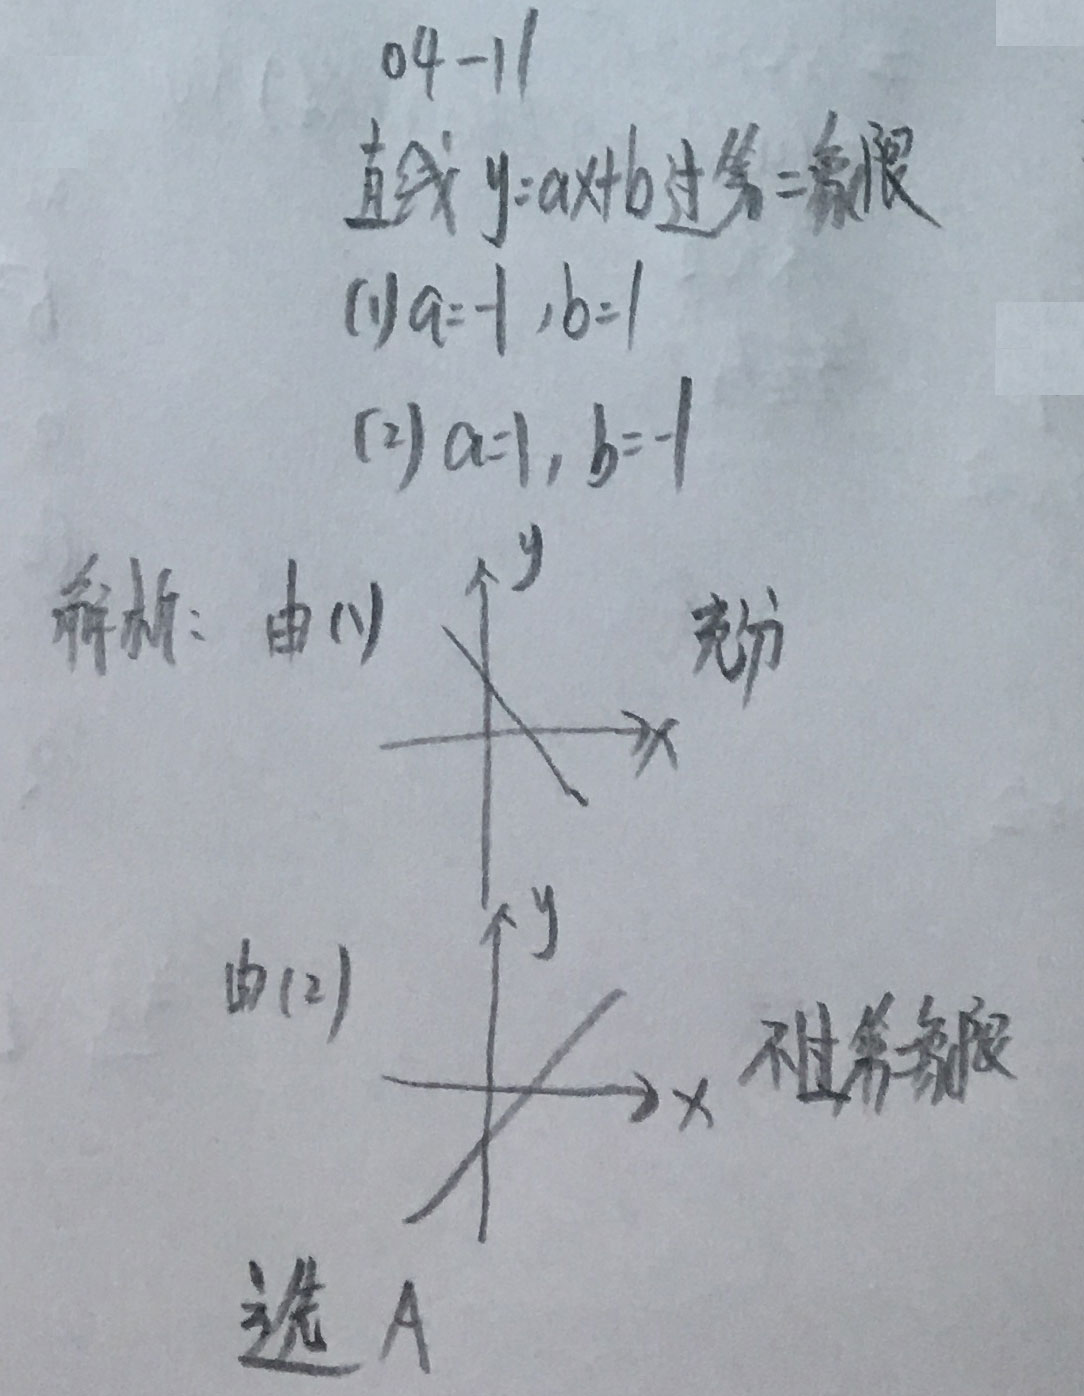 04-11
直线 y=ax+b过第二象限
(1) a=-1,b=1
(2) a=1, b=-1
解析: 由(1) y 充分
x
y
由(2) 不过第二象限
x
选 A